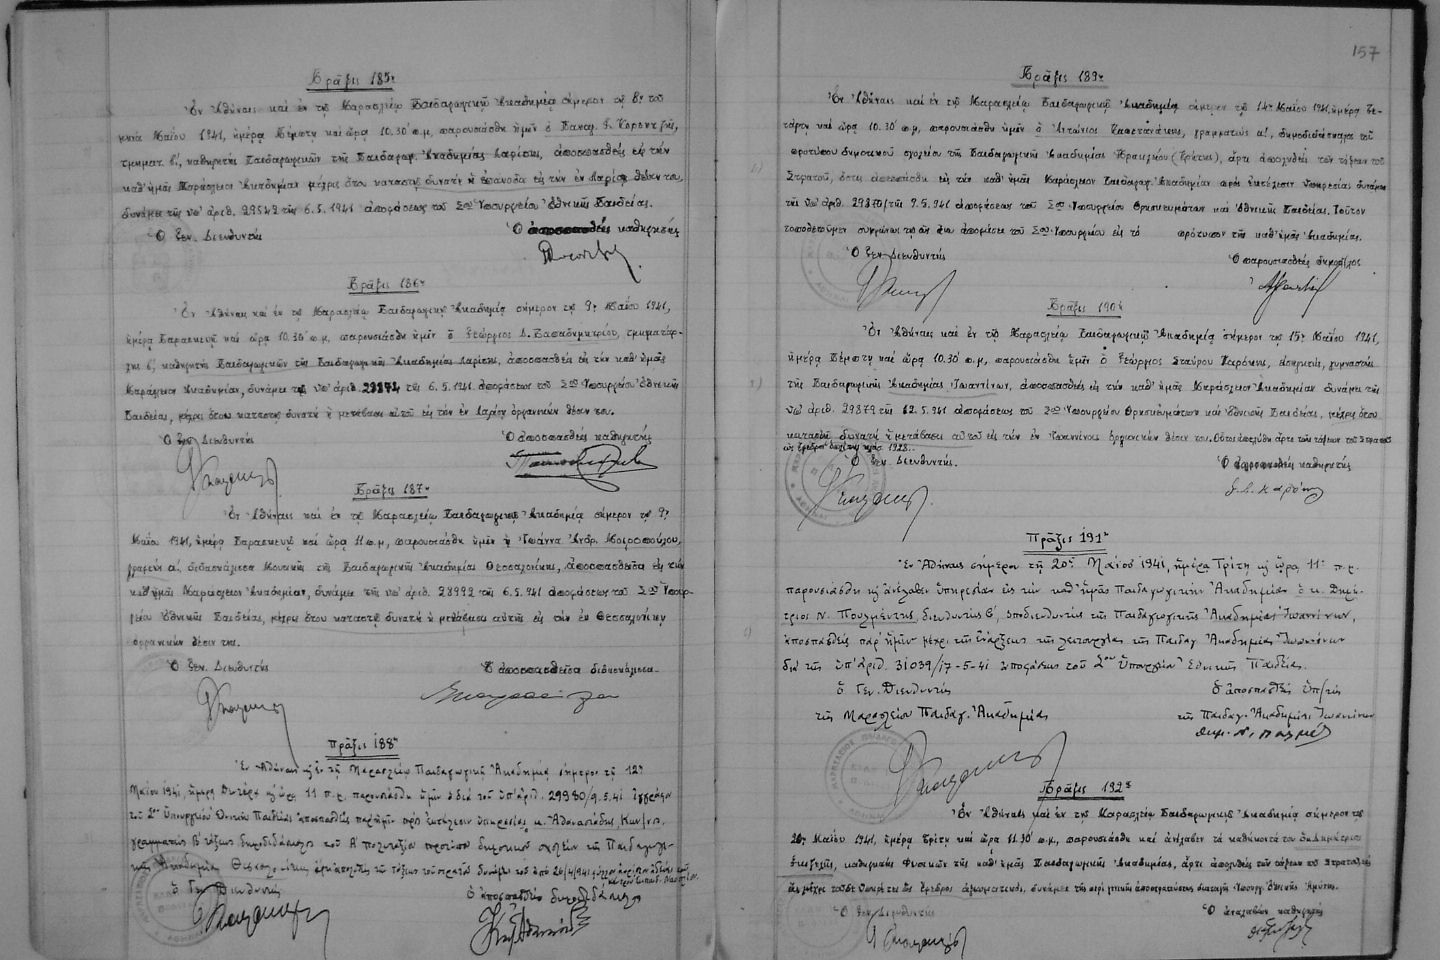 Πρᾶξις 185η
Ἐν Ἀθήναις καὶ ἐν τῇ Μαρασλείῳ Παιδαγωγικῇ Ἀκαδημίᾳ σήμερον τῇ 8ῃ τοῦ
μηνὸς Μαΐου 1941, ἡμέρᾳ Πέμπτῃ καὶ ὥρᾳ 10.30' π.μ, παρουσιάσθη ἡμῖν ὁ Παναγ. Γ. Κοροντζῆς,
τμηματ. β', καθηγητὴς Παιδαγωγικῶν τῆς Παιδαγωγ. Ἀκαδημίας Λαρίσης, ἀποσπασθεὶς εἰς τὴν
καθ' ἡμᾶς Μαράσλειον Ἀκαδημίαν μέχρις ὅτου καταστῇ δυνατὴ ἡ ἐπάνοδος εἰς τὴν ἐν Λαρίσῃ θέσιν του,
δυνάμει τῆς ὑπ' ἀριθ. 29542 τῆς 6.5.1941 ἀποφάσεως τοῦ Σοῦ Ὑπουργείου Ἐθνικῆς Παιδείας.
Ὁ Γεν. Διευθυντής
Ὁ καθηγητής
Πρᾶξις 186η
Ἐν Ἀθήναις καὶ ἐν τῇ Μαρασλείῳ Παιδαγωγικῇ Ἀκαδημίᾳ σήμερον τῇ 9ῃ Μαΐου 1941,
ἡμέρᾳ Παρασκευῇ καὶ ὥρᾳ 10.30' π.μ, παρουσιάσθη ἡμῖν ὁ Γεώργιος Δ. Παπαδημητρίου, τμηματάρ-
χης β', καθηγητὴς Παιδαγωγικῶν τῆς Παιδαγωγικῆς Ἀκαδημίας Λαρίσης, ἀποσπασθεὶς εἰς τὴν καθ' ἡμᾶς
Μαράσλειον Ἀκαδημίαν, δυνάμει τῆς ὑπ' ἀριθ. τῆς 6.5.1941 ἀποφάσεως τοῦ Σοῦ Ὑπουργείου Ἐθνικῆς
Παιδείας, μέχρις ὅτου καταστῇ δυνατὴ ἡ μετάβασις αὐτοῦ εἰς τὴν ἐν Λαρίσῃ ὀργανικὴν θέσιν του.
Ὁ Γεν. Διευθυντής
Ὁ ἀποσπασθεὶς καθηγητής
Πρᾶξις 187η
Ἐν Ἀθήναις καὶ ἐν τῇ Μαρασλείῳ Παιδαγωγικῇ Ἀκαδημίᾳ σήμερον τῇ 9ῃ
Μαΐου 1941, ἡμέρᾳ Παρασκευῇ καὶ ὥρᾳ 11 π.μ, παρουσιάσθη ἡμῖν ἡ Ἰωάννα Ἀνδρ. Μοιροπούλου,
γραφεὺς α', διδασκάλισσα Μουσικῆς τῆς Παιδαγωγικῆς Ἀκαδημίας Θεσσαλονίκης, ἀποσπασθεῖσα εἰς τὴν
καθ' ἡμᾶς Μαράσλειον Ἀκαδημίαν, δυνάμει τῆς ὑπ' ἀριθ. 28992 τῆς 6.5.1941 ἀποφάσεως τοῦ Σοῦ Ὑπουρ-
γείου Ἐθνικῆς Παιδείας, μέχρις ὅτου καταστῇ δυνατὴ ἡ μετάβασις αὐτῆς εἰς τὴν ἐν Θεσσαλονίκῃ
ὀργανικὴν θέσιν της.
Ὁ Γεν. Διευθυντής
Ἡ ἀποσπασθεῖσα διδασκάλισσα
Πρᾶξις 188η
Ἐν Ἀθήναις κ ἐν τῇ Μαρασλείῳ Παιδαγωγικῇ Ἀκαδημίᾳ σήμερον τῇ 12ῃ
Μαΐου 1941, ἡμέρᾳ Δευτέρᾳ κ ὥρᾳ 11 π.μ. παρουσιάσθη ἡμῖν ὁ διὰ τοῦ ὑπ' ἀριθ. 29980/9.5.41 ἐγγράφου
τοῦ Σοῦ Ὑπουργείου Ἐθνικῆς Παιδείας ἀποσπασθεὶς παρ' ἡμῖν πρὸς ἐκτέλεσιν ὑπηρεσίας κ. Ἀθανασιάδης Κων/νος
γραμματεὺς Β' τάξεως δημοδιδάσκαλος τοῦ Α' πολυταξίου προτύπου δημοτικοῦ σχολείου τῆς Παιδαγωγι-
κῆς Ἀκαδημίας Θεσσαλονίκης
ὁ Γεν. Διευθυντής
ὁ ἀποσπασθεὶς δημοδιδάσκαλος
157
Πρᾶξις 189η
Ἐν Ἀθήναις καὶ ἐν τῇ Μαρασλείῳ Παιδαγωγικῇ Ἀκαδημίᾳ σήμερον τῇ 14ῃ Μαΐου 1941, ἡμέρᾳ Τε-
τάρτῃ καὶ ὥρᾳ 10.30' π.μ, παρουσιάσθη ἡμῖν ὁ Ἀντώνιος Καπετανάκης, γραμματεὺς α', δημοδιδάσκαλος τοῦ
προτύπου δημοτικοῦ σχολείου τῆς Παιδαγωγικῆς Ἀκαδημίας Ἡρακλείου (Κρήτης), ἄρτι ἀπολυθεὶς τῶν τάξεων τοῦ
Στρατοῦ, ὅστις ἀπεσπάσθη εἰς τὴν καθ' ἡμᾶς Μαράσλειον Παιδαγωγ. Ἀκαδημίαν πρὸς ἐκτέλεσιν ὑπηρεσίας δυνάμει
τῆς ὑπ' ἀριθ. 29870/τῆς 9.5.941 ἀποφάσεως τοῦ Σοῦ Ὑπουργείου Θρησκευμάτων καὶ Ἐθνικῆς Παιδείας. Τοῦτον
τοποθετοῦμεν συμφώνως τῇ ὡς ἄνω ἀποφάσει τοῦ Σοῦ Ὑπουργείου εἰς τὸ πρότυπον τῆς καθ' ἡμᾶς Ἀκαδημίας.
Ὁ Γεν. Διευθυντής
Ὁ παρουσιασθεὶς δημοδ/λος
Πρᾶξις 190ή
Ἐν Ἀθήναις καὶ ἐν τῇ Μαρασλείῳ Παιδαγωγικῇ Ἀκαδημίᾳ σήμερον τῇ 15ῃ Μαΐου 1941,
ἡμέρᾳ Πέμπτῃ καὶ ὥρᾳ 10.30' π.μ, παρουσιάσθη ἡμῖν ὁ Γεώργιος Σταύρου Καρδάσης, εἰσηγητής, γυμναστὴς
τῆς Παιδαγωγικῆς Ἀκαδημίας Ἰωαννίνων, ἀποσπασθεὶς εἰς τὴν καθ' ἡμᾶς Μαράσλειον Ἀκαδημίαν δυνάμει τῆς
ὑπ' ἀριθ. 29879 τῆς 12.5.941 ἀποφάσεως τοῦ Σοῦ Ὑπουργείου Θρησκευμάτων καὶ Ἐθνικῆς Παιδείας, μέχρις ὅτου
καταστῇ δυνατὴ ἡ μετάβασις αὐτοῦ εἰς τὴν ἐν Ἰωαννίνοις ὀργανικὴν θέσιν του. Οὗτος ἀπελύθη ἄρτι τῶν τάξεων τοῦ Στρατοῦ
ὡς ἔφεδρος 1928.
Ὁ Γεν. Διευθυντής.
Ὁ ἀποσπασθεὶς καθηγητής
Πρᾶξις 191η
Ἐν Ἀθήναις σήμερον τῇ 20ῃ Μαΐου 1941, ἡμέρᾳ Τρίτῃ κ ὥρᾳ 11ῃ π.μ.
παρουσιάσθη κ ἀνέλαβεν ὑπηρεσίαν εἰς τὴν καθ' ἡμᾶς Παιδαγωγικὴν Ἀκαδημίαν ὁ κ. Δημή-
τριος Ν. Πουλμέντης, διευθυντὴς β', ὑποδιευθυντὴς τῆς Παιδαγωγικῆς Ἀκαδημίας Ἰωαννίνων,
ἀποσπασθεὶς παρ' ἡμῖν μέχρι τῆς ἐνάρξεως τῆς λειτουργίας τῆς Παιδαγ. Ἀκαδημίας Ἰωαννίνων
διὰ τῆς ὑπ' ἀριθ. 31039/17-5-41 ἀποφάσεως τοῦ Σοῦ Ὑπουργείου Ἐθνικῆς Παιδείας.
ὁ Γεν. Διευθυντής
τῆς Μαρασλείου Παιδαγ. Ἀκαδημίας
ὁ ἀποσπασθεὶς ὑπ/τής
τῆς Παιδαγ. Ἀκαδημίας Ἰωαννίνων
Πρᾶξις 192α
Ἐν Ἀθήναις καὶ ἐν τῇ Μαρασλείῳ Παιδαγωγικῇ Ἀκαδημίᾳ σήμερον τῇ
20ῃ Μαΐου 1941, ἡμέρᾳ Τρίτῃ καὶ ὥρᾳ 11.30' π.μ, παρουσιάσθη καὶ ἀνέλαβε τὰ καθήκοντά του
καθηγητὴς Φυσικῶν τῆς καθ' ἡμᾶς Παιδαγωγικῆς Ἀκαδημίας, ἄρτι ἀπολυθεὶς τῶν τάξεων τοῦ Στρατοῦ
Ὁ Γεν. Διευθυντής
Ὁ ἀναλαβὼν καθηγητής